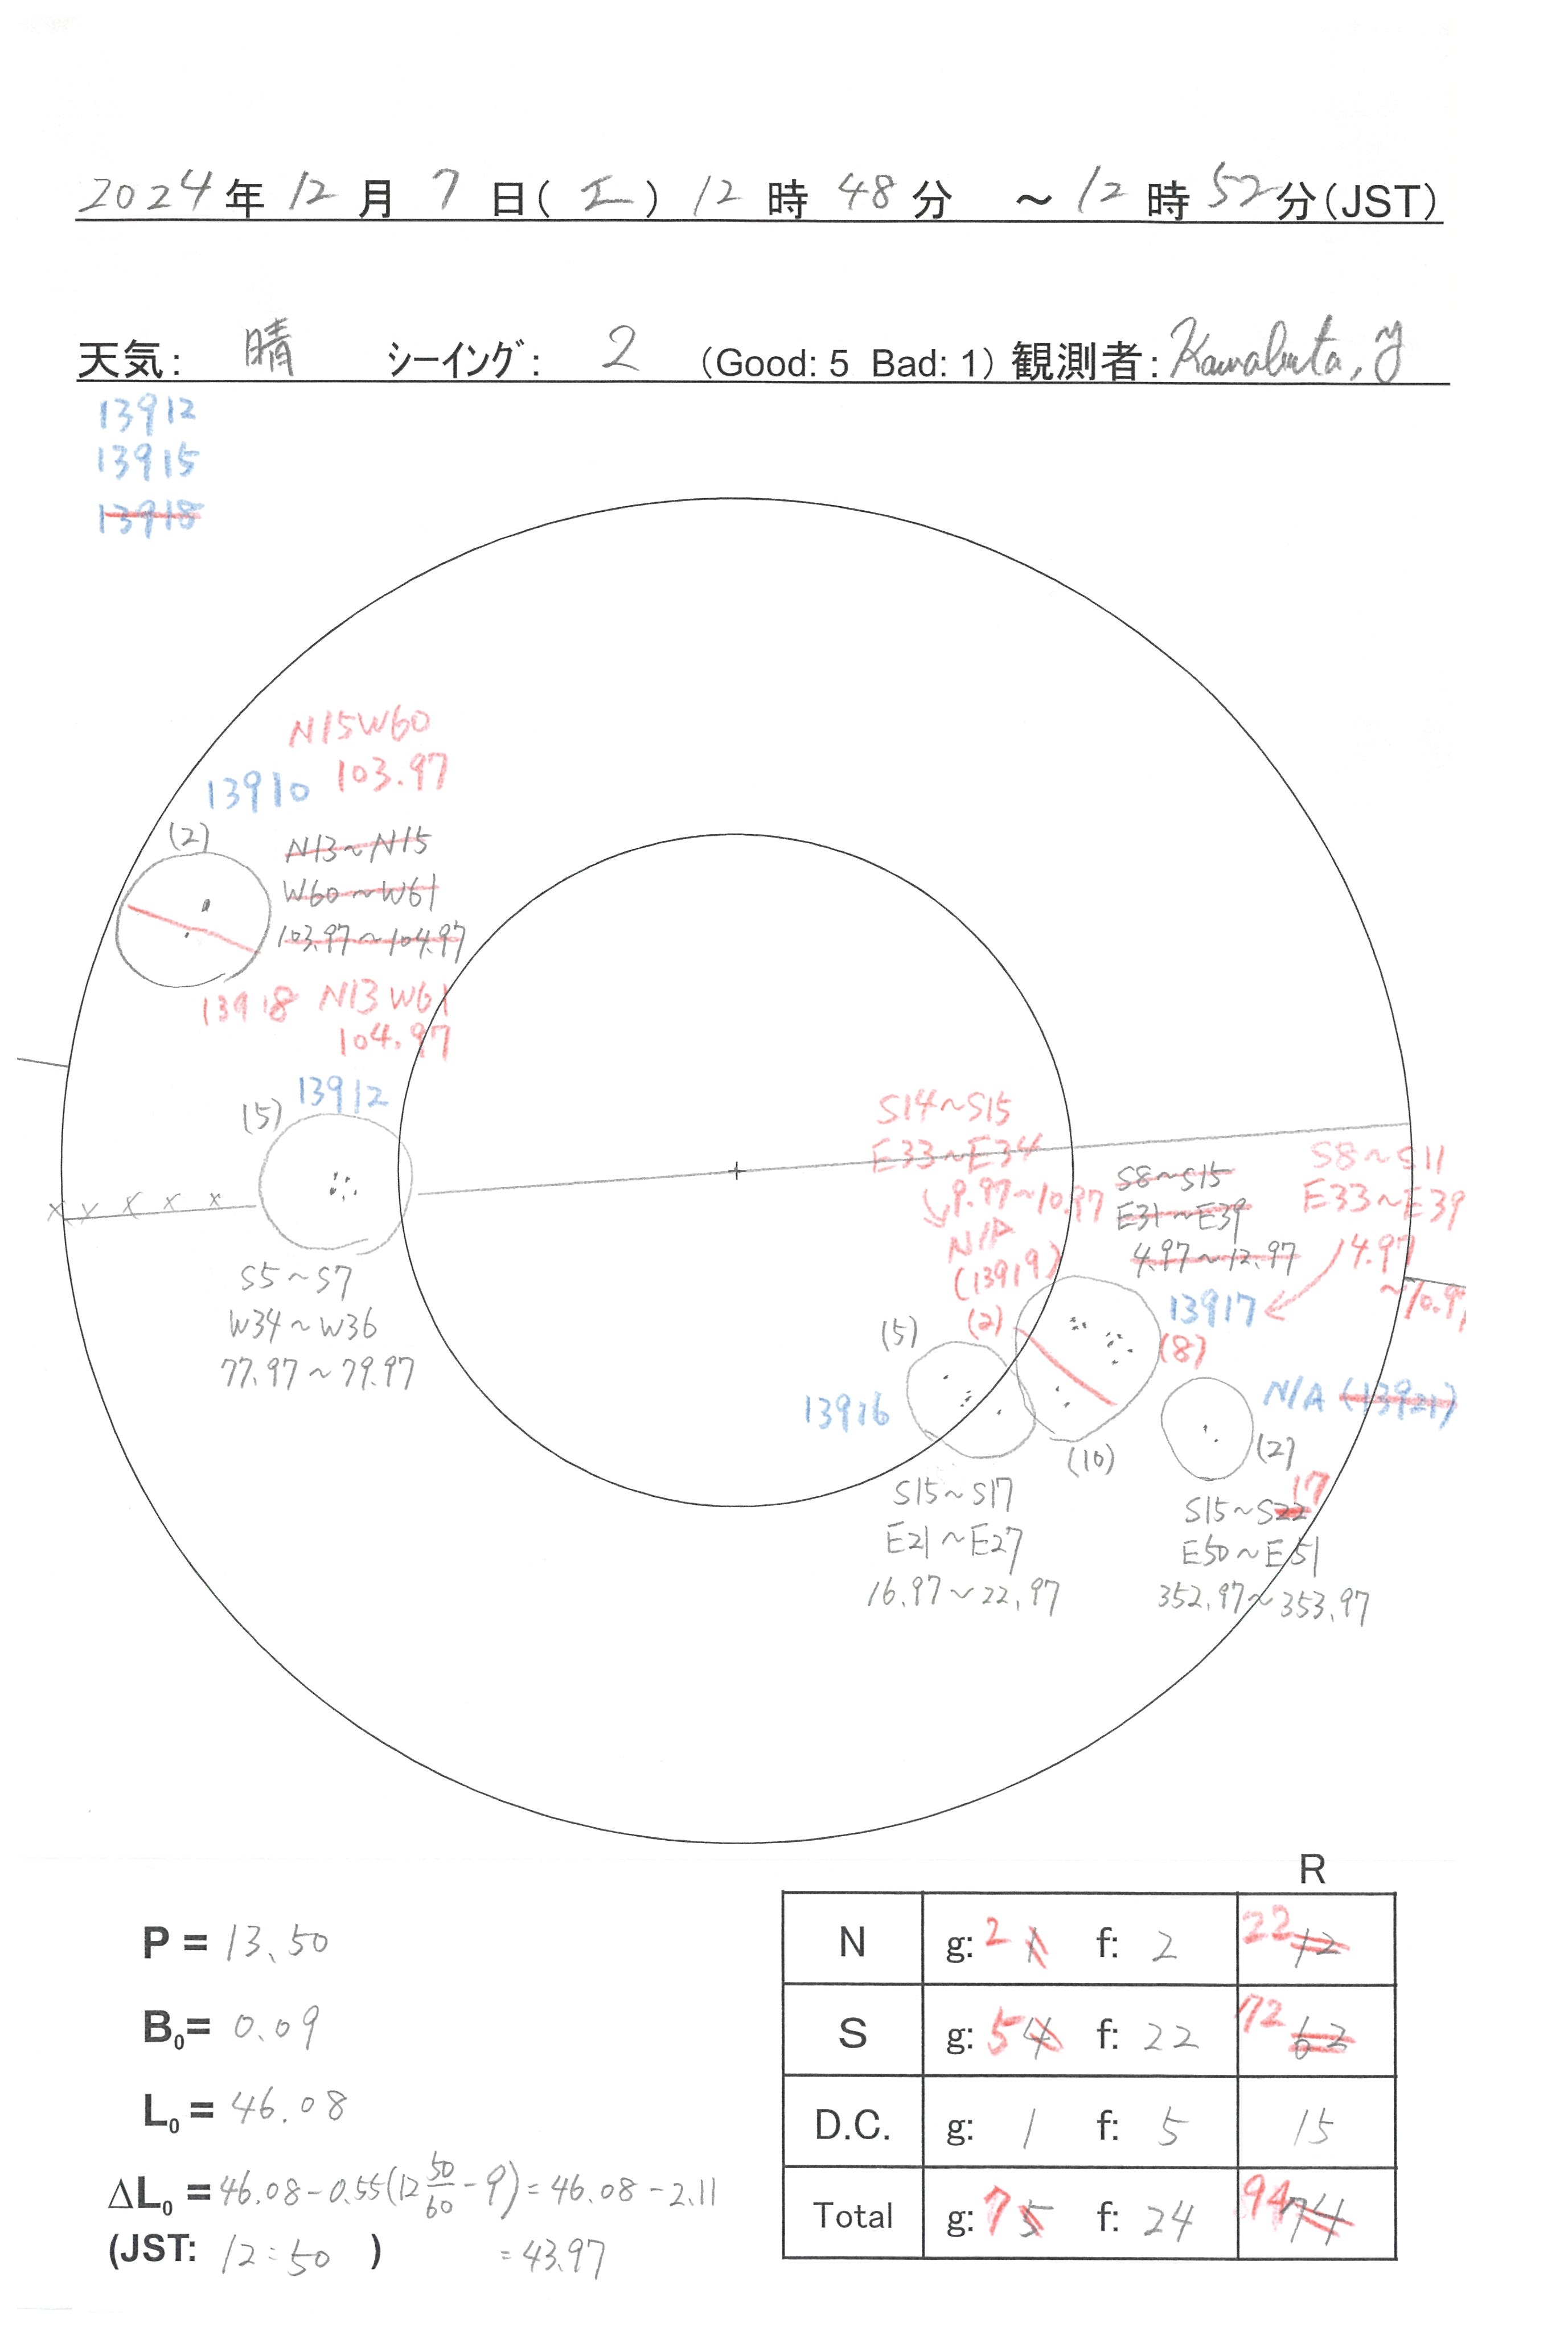 2024年 12月 7日(土) 12時 48分 ～12時 52分(JST)
天気: 晴 シーイング: 2 (Good: 5 Bad: 1) 観測者: Kawabata, Y
13912
13915
13918
N15W60
103.97
13910
(2)
N13~N15
W60~W61
103.97~104.97
13918 N13 W61
104.97
13912
(5)
S5~S7
W34~W36
77.97~79.97
S14~S15
E33~E34
9.97~10.97
N/A
(13919)
(2)
S8~S15
E31~E39
4.97~12.97
S8~S11
E33~E39
14.97
~10.9
13917
(8)
(5)
13916
(10)
S15~S17
E21~E27
16.97~22.97
N/A (13921)
(2)
17
S15~S22
E50~E51
352.97~353.97
P = 13.50
B0= 0.09
L0 = 46.08
ΔL0 = 46.08-0.55(12 50/60 - 9) = 46.08 - 2.11
(JST: 12:50 ) = 43.97
R
N g: 2 1 f: 2 22 12
S g: 5 4 f: 22 72 62
D.C. g: 1 f: 5 15
Total g: 7 5 f: 24 94 74